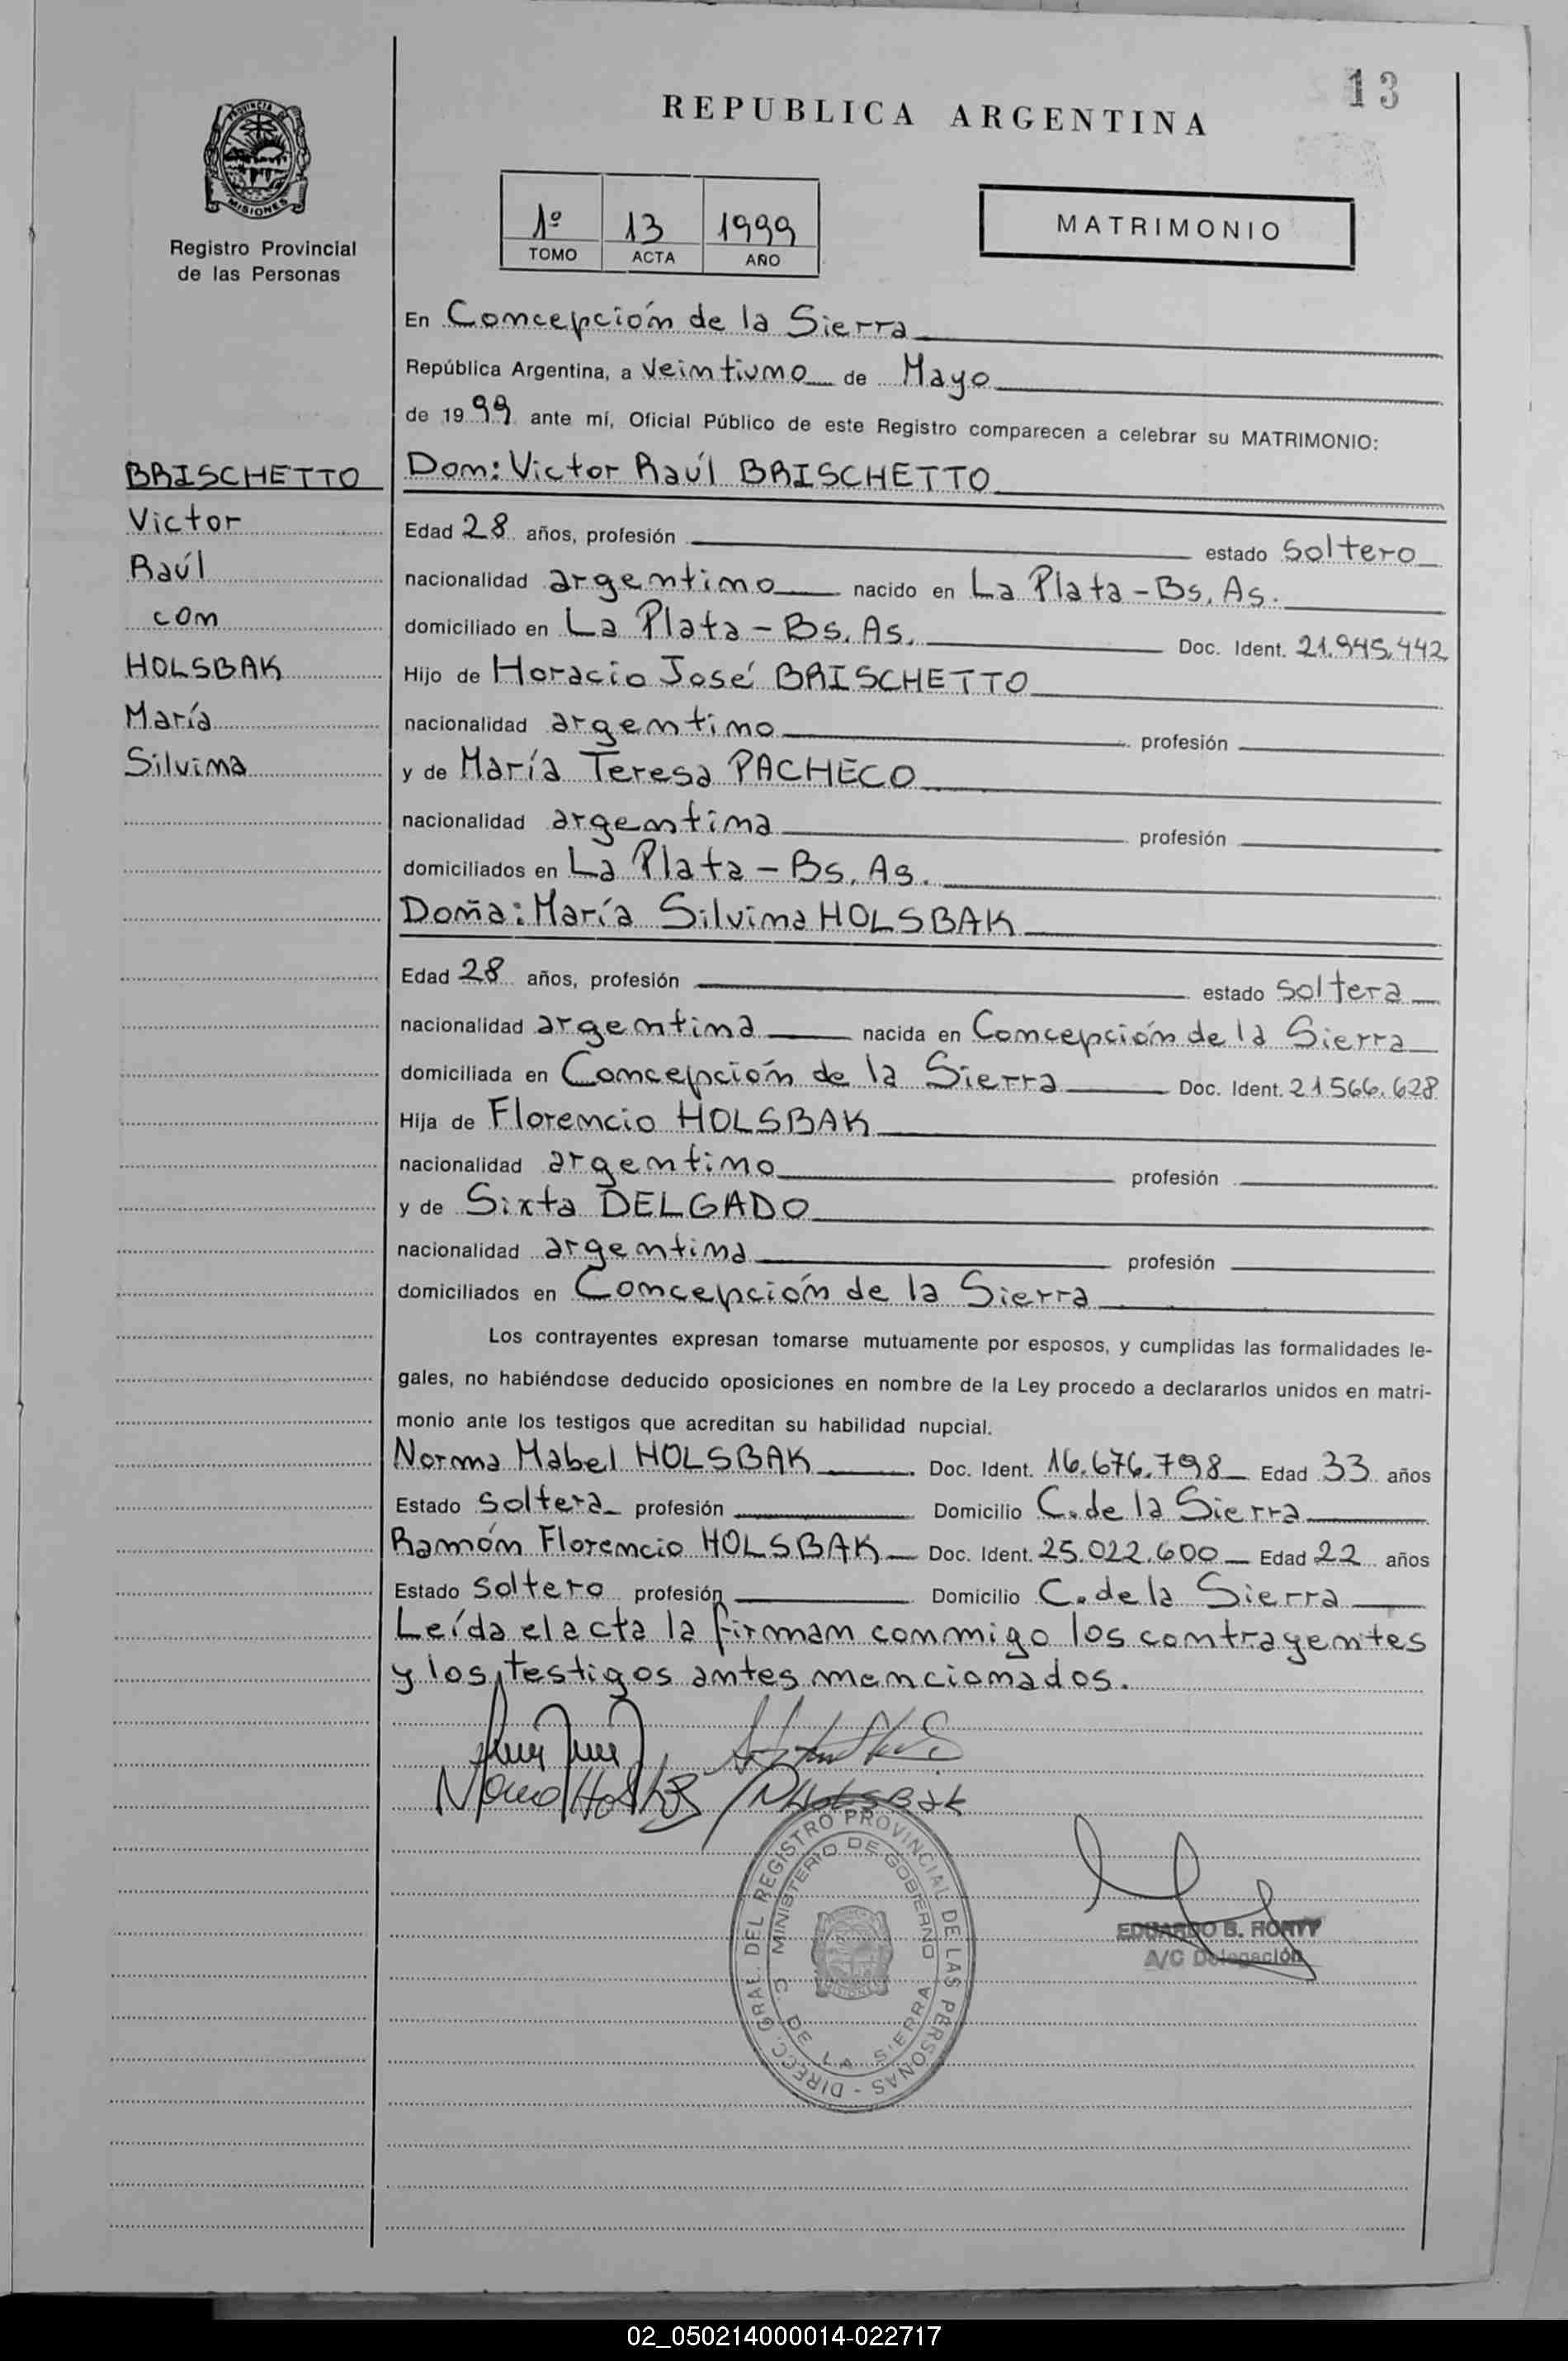 13
REPUBLICA ARGENTINA
MISIONES
Registro Provincial
de las Personas
1º 13 1999
TOMO ACTA AÑO
MATRIMONIO
En Concepción de la Sierra
República Argentina, a Veintiuno de Mayo
de 1999 ante mí, Oficial Público de este Registro comparecen a celebrar su MATRIMONIO:
BRISCHETTO
Victor
Raúl
con
HOLSBAK
María
Silvina
Don: Victor Raúl BRISCHETTO
Edad 28 años, profesión estado Soltero
nacionalidad argentino nacido en La Plata - Bs. As.
domiciliado en La Plata - Bs. As. Doc. Ident. 21.945.442
Hijo de Horacio José BRISCHETTO
nacionalidad argentino profesión
y de María Teresa PACHECO
nacionalidad argentina profesión
domiciliados en La Plata - Bs. As.
Doña: María Silvina HOLSBAK
Edad 28 años, profesión estado Soltera
nacionalidad argentina nacida en Concepción de la Sierra
domiciliada en Concepción de la Sierra Doc. Ident. 21.566.628
Hija de Florencio HOLSBAK
nacionalidad argentino profesión
y de Sixta DELGADO
nacionalidad argentina profesión
domiciliados en Concepción de la Sierra
Los contrayentes expresan tomarse mutuamente por esposos, y cumplidas las formalidades le-
gales, no habiéndose deducido oposiciones en nombre de la Ley procedo a declararlos unidos en matri-
monio ante los testigos que acreditan su habilidad nupcial.
Norma Mabel HOLSBAK Doc. Ident. 16.676.798 Edad 33 años
Estado Soltera profesión Domicilio C. de la Sierra
Ramón Florencio HOLSBAK Doc. Ident. 25.022.600 Edad 22 años
Estado Soltero profesión Domicilio C. de la Sierra
Leída el acta la firman conmigo los contrayentes
y los testigos antes mencionados.
HOLSBAK
DIRECC. GRAL. DEL REGISTRO PROVINCIAL DE LAS PERSONAS -
MINISTERIO DE GOBIERNO
C. DE LA SIERRA
MISIONES
EDUARDO
A/C Delegación
02_050214000014-022717